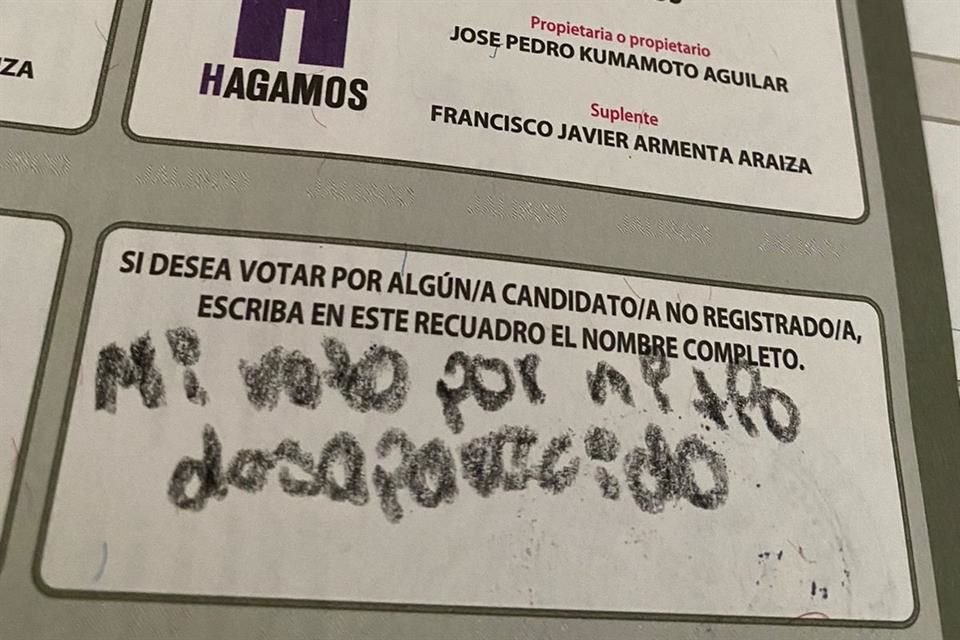 Propietaria o propietario
JOSE PEDRO KUMAMOTO AGUILAR
HAGAMOS
Suplente
FRANCISCO JAVIER ARMENTA ARAIZA
SI DESEA VOTAR POR ALGÚN/A CANDIDATO/A NO REGISTRADO/A,
ESCRIBA EN ESTE RECUADRO EL NOMBRE COMPLETO.
Mi voto por
desaparecido